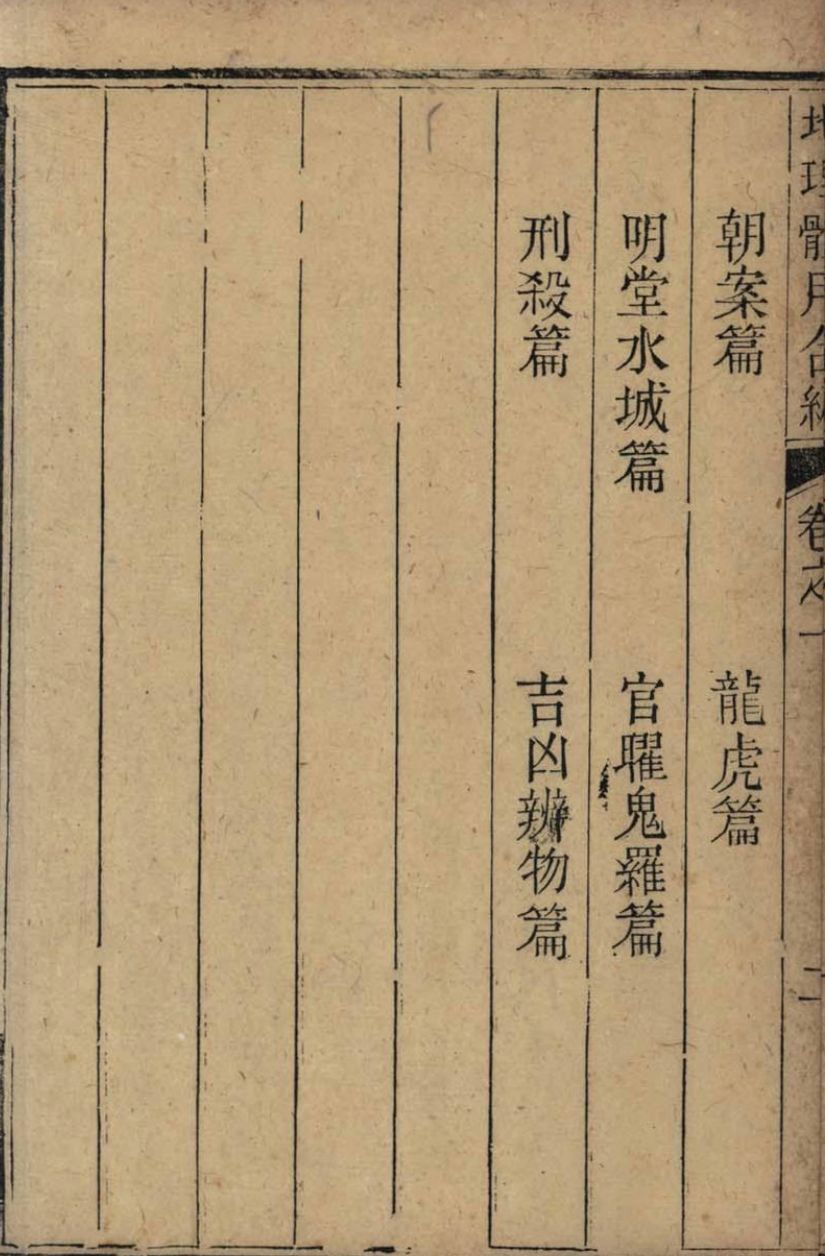 地理體用合編 卷之一 二
朝案篇 龍虎篇
明堂水城篇 官曜鬼羅篇
刑殺篇 吉凶辨物篇